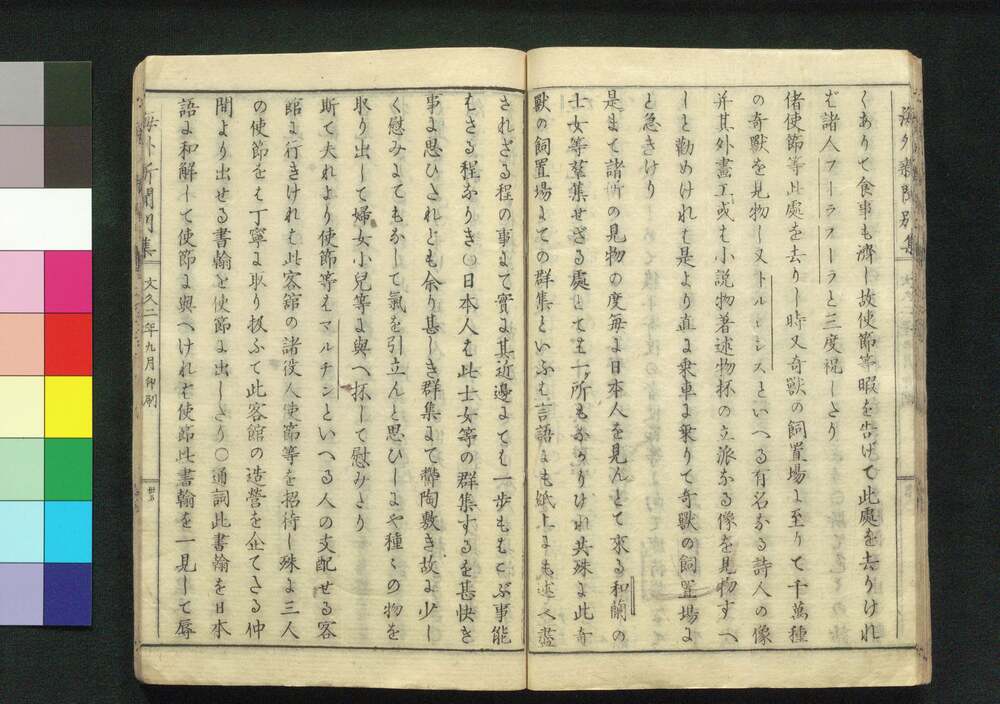 海外新聞別集
くありて食事も濟し故使節等暇を告げて此處を去りけれ
ば諸人フーラフーラと三度祝しさり
偖使節等此處を去りし時又奇獸の飼置場に至りて千萬種
の奇獸を見物し又トルレンスといへる有名なる詩人の像
并其外畫工或は小説物著述物抔の立派なる像を見物すへ
しと勸めけれは是より直に乘車に乘りて奇獸の飼置場に
と急きけり
是まて諸所の見物の度毎に日本人を見んとて來る和蘭の
士女等羣集せざる處とては一所もなかりけれ共殊に此奇
獸の飼置場にての群集といふは言語にも紙上にも述へ盡
されざる程の事にて實に其近邊にては一歩もはこぶ事能
はさる程なりき○日本人は此士女等の群集するを甚快き
事に思ひされとも余り甚しき群集にて欝陶敷き故に少し
く慰みにてもなして氣を引立んと思ひしにや種々の物を
取り出して婦女小兒等に與へ抔して慰みさり
斯て夫れより使節等はマルチンといへる人の支配せる客
館に行きけれは此客舘の諸役人使節等を招待し殊に三人
の使節をは丁寧に取り扱ふて此客館の造營を企てさる仲
間より出せる書翰を使節に出しさり○通詞此書翰を日本
語に和解して使節に與へけれは使節此書翰を一見して辱
海外新聞別集
文久二年九月印刷